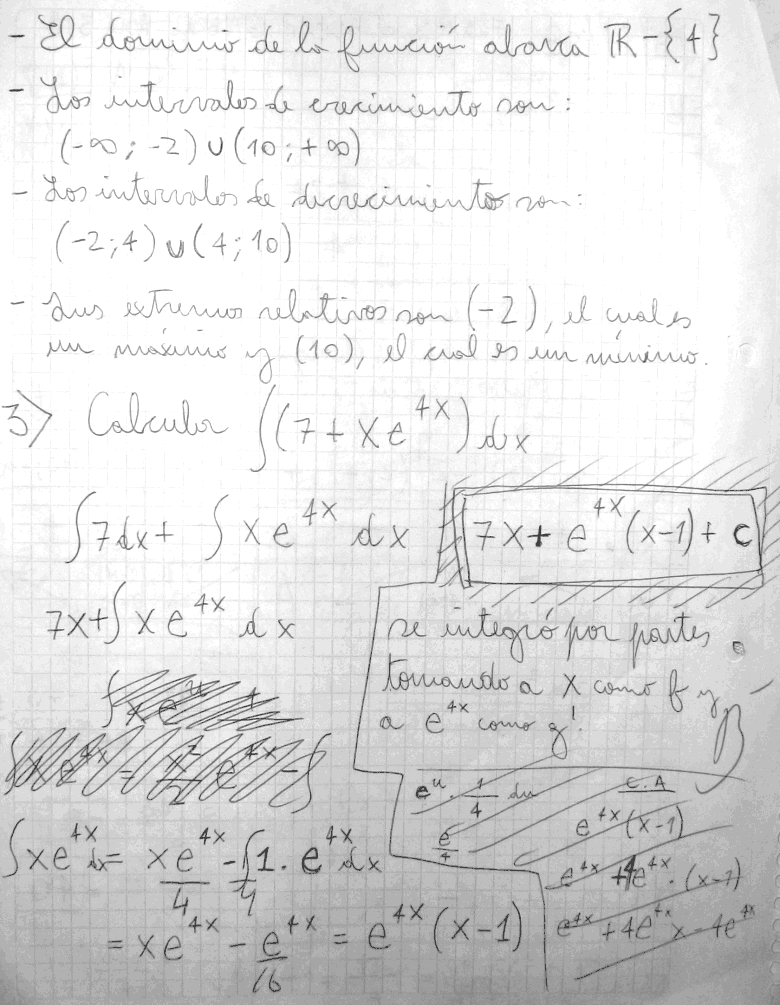 - El dominio de la función abarca ℝ-{4}
- Los intervalos de crecimiento son:
(-∞; -2) ∪ (10; +∞)
- Los intervalos de decrecimiento son:
(-2;4) ∪ (4;10)
- Sus extremos relativos son (-2), el cual es
un máximo y (10), el cual es un mínimo.
3> Calcular ∫(7 + xe^{4x}) dx
∫7dx + ∫xe^{4x} dx
7x + e^{4x}(x-1) + c
7x+∫xe^{4x} dx
se integró por partes
tomando a x como f y
a e^{4x} como g'.
B-
e^u · 1/4 du
e/4
C.A
e^{4x}(x-1)
e^{4x} + 4e^{4x}·(x-1)
e^{4x} + 4e^{4x}x - 4e^{4x}
∫xe^{4x} dx = xe^{4x}/4 - ∫1·e^{4x}/4 dx
= xe^{4x} - e^{4x}/16 = e^{4x}(x-1)